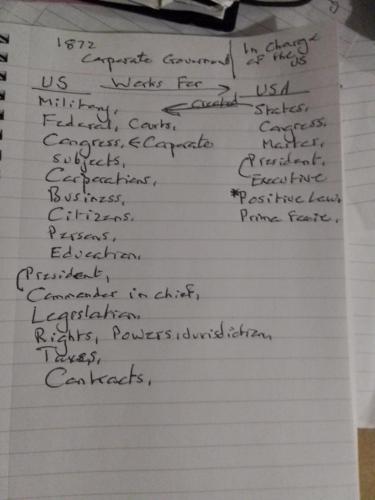 1872
Corporate Government | In Charge of the US
US Works For → USA
Military, ← Created States,
Federal, Courts, Congress,
Congress, ← Corporate
Subjects, President,
Corporations, Executive
Business, *Positive Law,
Citizens, Prima Facie,
Persons,
Education,
President,
Commander in chief,
Legislation,
Rights, Powers, Jurisdiction,
Taxes,
Contracts,